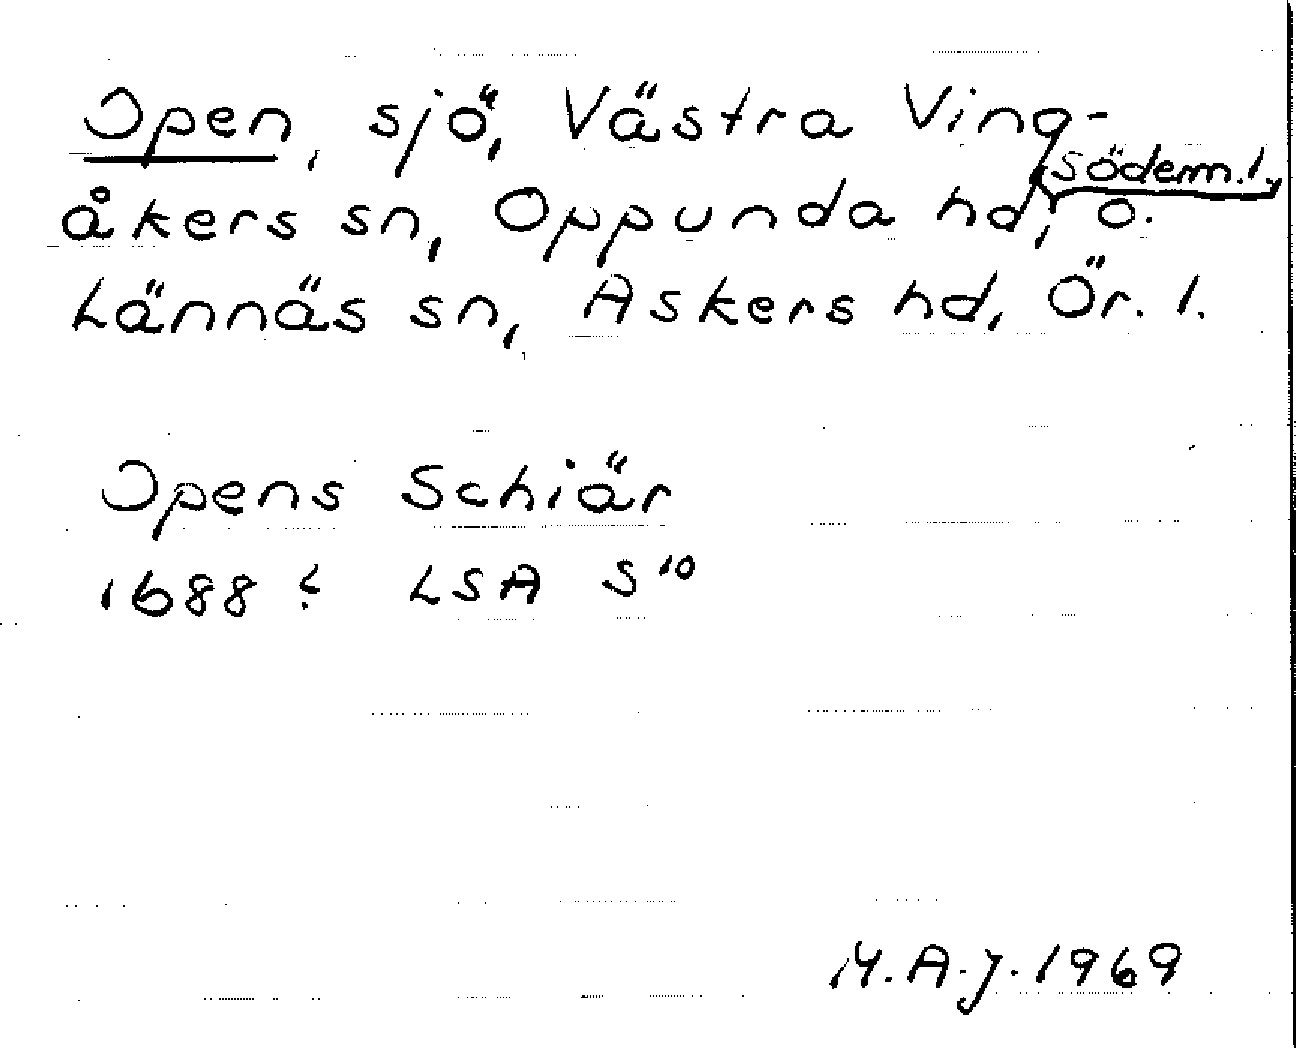 Open, sjö, Västra Ving-
åkers sn, Oppunda hd, söderm. l., o.
Lännäs sn, Askers hd, Ör. l.
Opens Schiär
1688? LSA S 10
M.A.J. 1969